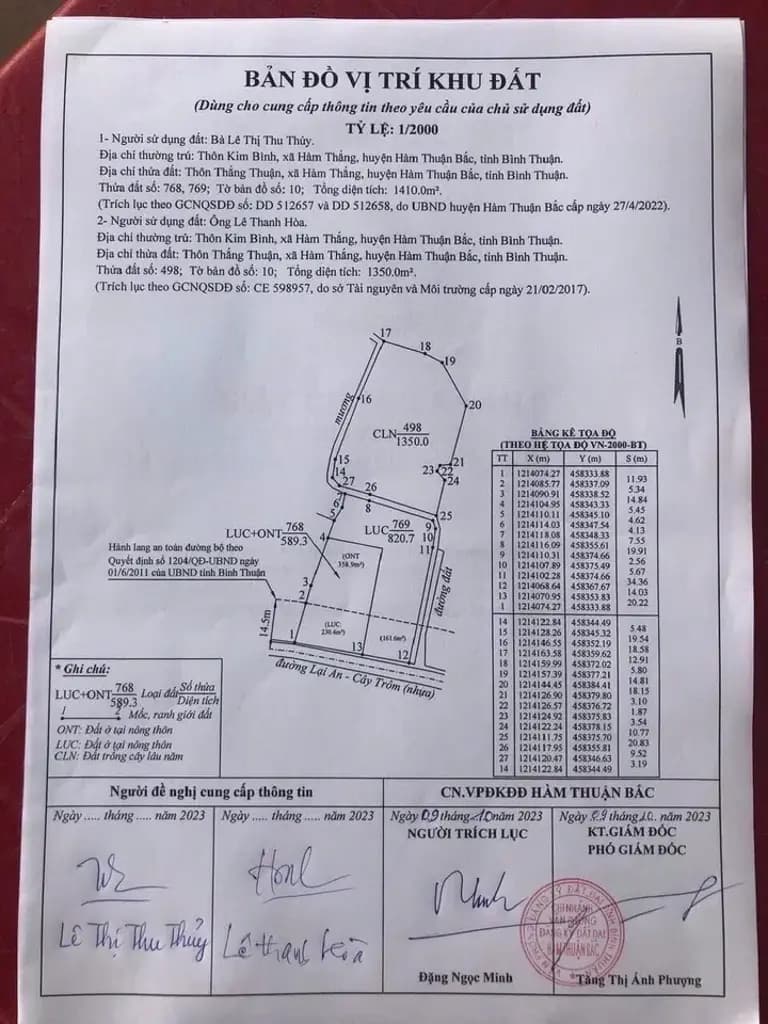 BẢN ĐỒ VỊ TRÍ KHU ĐẤT
(Dùng cho cung cấp thông tin theo yêu cầu của chủ sử dụng đất)
TỶ LỆ: 1/2000
1- Người sử dụng đất: Bà Lê Thị Thu Thủy.
Địa chỉ thường trú: Thôn Kim Bình, xã Hàm Thắng, huyện Hàm Thuận Bắc, tỉnh Bình Thuận.
Địa chỉ thửa đất: Thôn Thắng Thuận, xã Hàm Thắng, huyện Hàm Thuận Bắc, tỉnh Bình Thuận.
Thửa đất số: 768, 769; Tờ bản đồ số: 10; Tổng diện tích: 1410.0m².
(Trích lục theo GCNQSDĐ số: DD 512657 và DD 512658, do UBND huyện Hàm Thuận Bắc cấp ngày 27/4/2022).
2- Người sử dụng đất: Ông Lê Thanh Hòa.
Địa chỉ thường trú: Thôn Kim Bình, xã Hàm Thắng, huyện Hàm Thuận Bắc, tỉnh Bình Thuận.
Địa chỉ thửa đất: Thôn Thắng Thuận, xã Hàm Thắng, huyện Hàm Thuận Bắc, tỉnh Bình Thuận.
Thửa đất số: 498; Tờ bản đồ số: 10; Tổng diện tích: 1350.0m².
(Trích lục theo GCNQSDĐ số: CE 598957, do sở Tài nguyên và Môi trường cấp ngày 21/02/2017).
B
17
18
19
mương
16
20
CLN 498
1350.0
15
14
23 22 21
24
27
26
6
5
8
25
9
10
11
LUC+ONT 768
589.3
LUC 769
820.7
4
(ONT
358.9m²)
Hành lang an toàn đường bộ theo
Quyết định số 1204/QĐ-UBND ngày
01/6/2011 của UBND tỉnh Bình Thuận
3
2
đường đất
14.5m
(LUC:
230.4m²)
(161.6m²)
1
13
12
đường Lại An - Cây Trôm (nhựa)
BẢNG KÊ TỌA ĐỘ
(THEO HỆ TỌA ĐỘ VN-2000-BT)
TT X (m) Y (m) S (m)
1 1214074.27 458333.88
11.93
2 1214085.77 458337.09
5.34
3 1214090.91 458338.52
14.84
4 1214104.95 458343.33
5.45
5 1214110.11 458345.10
4.62
6 1214114.03 458347.54
4.13
7 1214118.08 458348.33
7.55
8 1214116.09 458355.61
19.91
9 1214110.31 458374.66
2.56
10 1214107.89 458375.49
5.67
11 1214102.28 458374.66
34.36
12 1214068.64 458367.67
14.03
13 1214070.95 458353.83
20.22
1 1214074.27 458333.88
14 1214122.84 458344.49
5.48
15 1214128.26 458345.32
19.54
16 1214146.55 458352.19
18.58
17 1214163.58 458359.62
12.91
18 1214159.99 458372.02
5.80
19 1214157.39 458377.21
14.81
20 1214144.45 458384.41
18.15
21 1214126.90 458379.80
3.10
22 1214126.57 458376.72
1.87
23 1214124.92 458375.83
3.54
24 1214122.24 458378.15
10.77
25 1214111.75 458375.70
20.83
26 1214117.95 458355.81
9.52
27 1214120.47 458346.63
3.19
14 1214122.84 458344.49
* Ghi chú:
LUC+ONT 768
589.3
Loại đất Số thửa
Diện tích
1 2 Mốc, ranh giới đất
ONT: Đất ở tại nông thôn
LUC: Đất ở tại nông thôn
CLN: Đất trồng cây lâu năm
Người đề nghị cung cấp thông tin
CN.VPĐKĐĐ HÀM THUẬN BẮC
Ngày ..... tháng ..... năm 2023
Ngày ..... tháng ..... năm 2023
Ngày 09 tháng 10 năm 2023
Ngày 09 tháng 10 năm 2023
NGƯỜI TRÍCH LỤC
KT.GIÁM ĐỐC
PHÓ GIÁM ĐỐC
Lê Thị Thu Thủy
Lê Thanh Hòa
CHI NHÁNH
VĂN PHÒNG
ĐĂNG KÝ ĐẤT ĐAI
HÀM THUẬN BẮC
Đặng Ngọc Minh
Tăng Thị Ánh Phượng